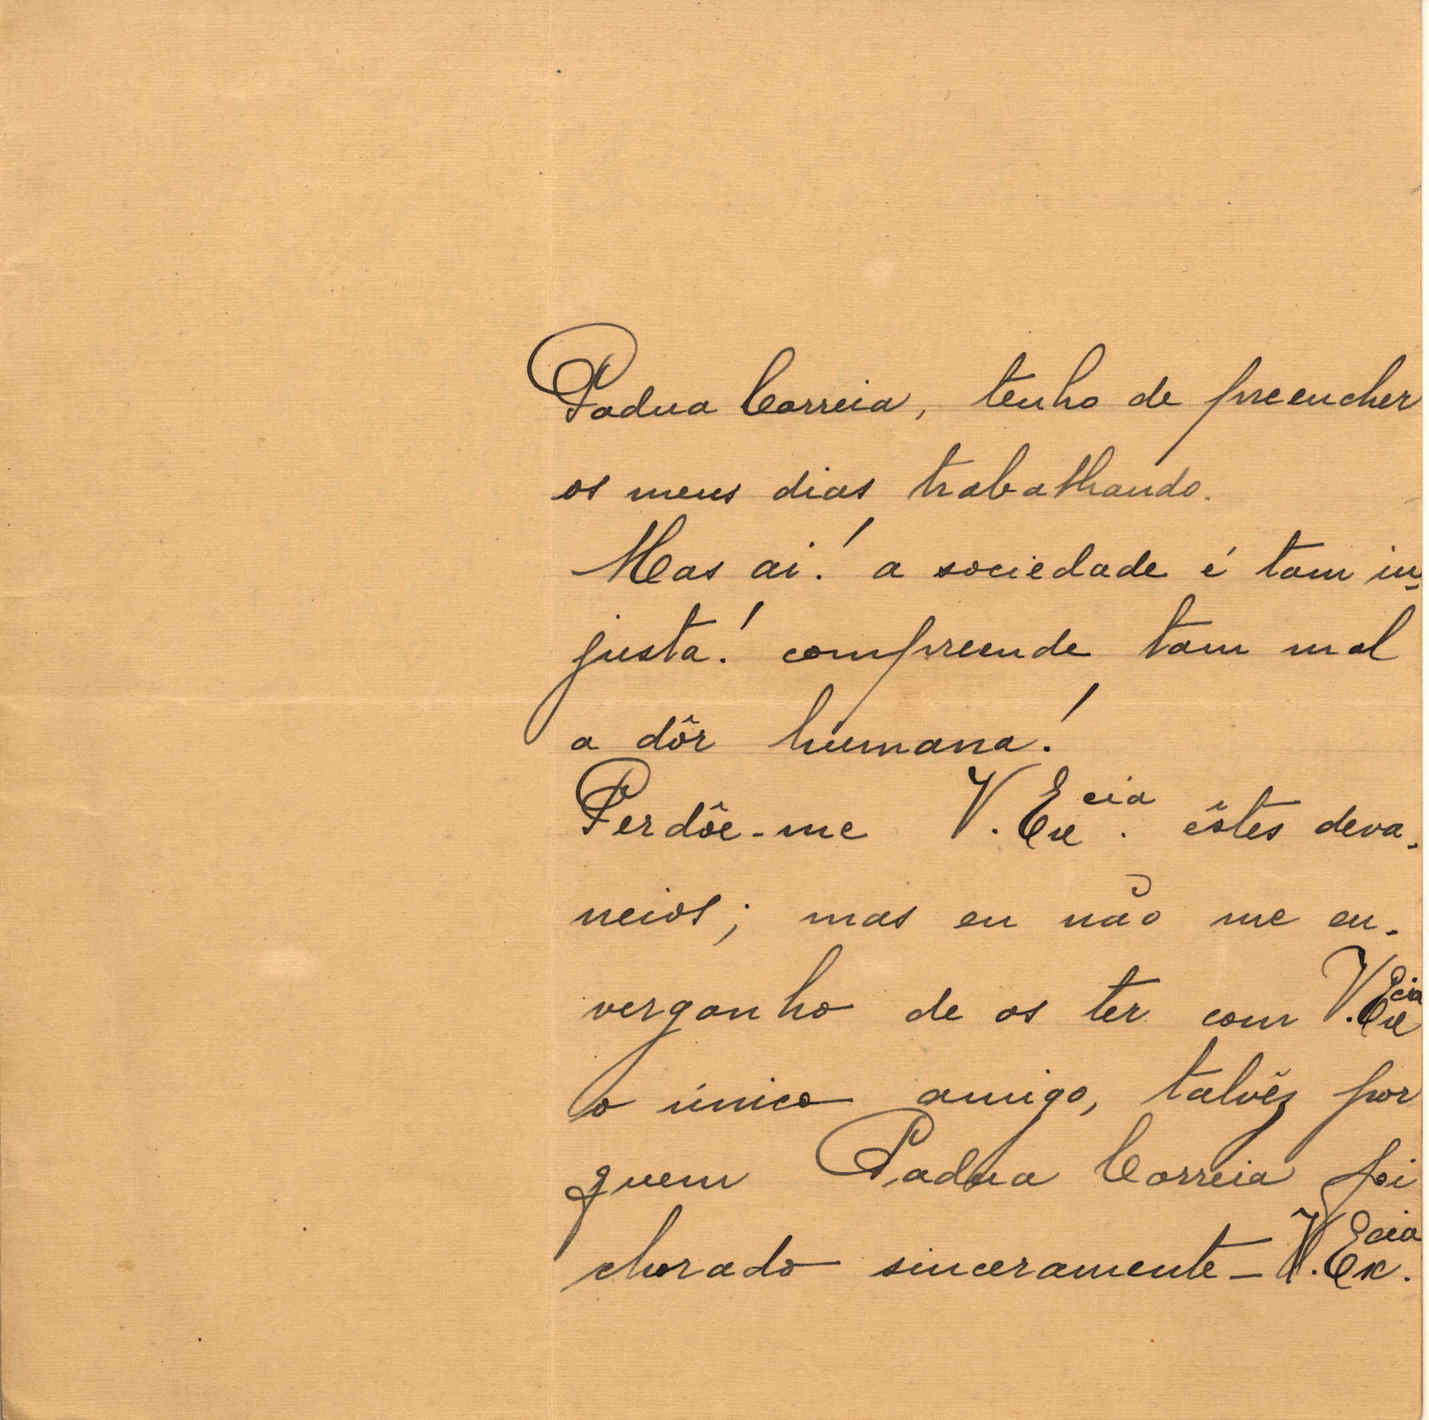 Padua Correia, tenho de preencher
os meus dias trabalhando.
Mas ai! a sociedade é tam in-
justa! compreende tam mal
a dôr humana!
Perdôe-me V. Excia. êstes deva-
neios; mas eu não me en-
vergonho de os ter com V. Excia
o único amigo, talvêz por
quem Padua Correia foi
chorado sinceramente - V. Excia.